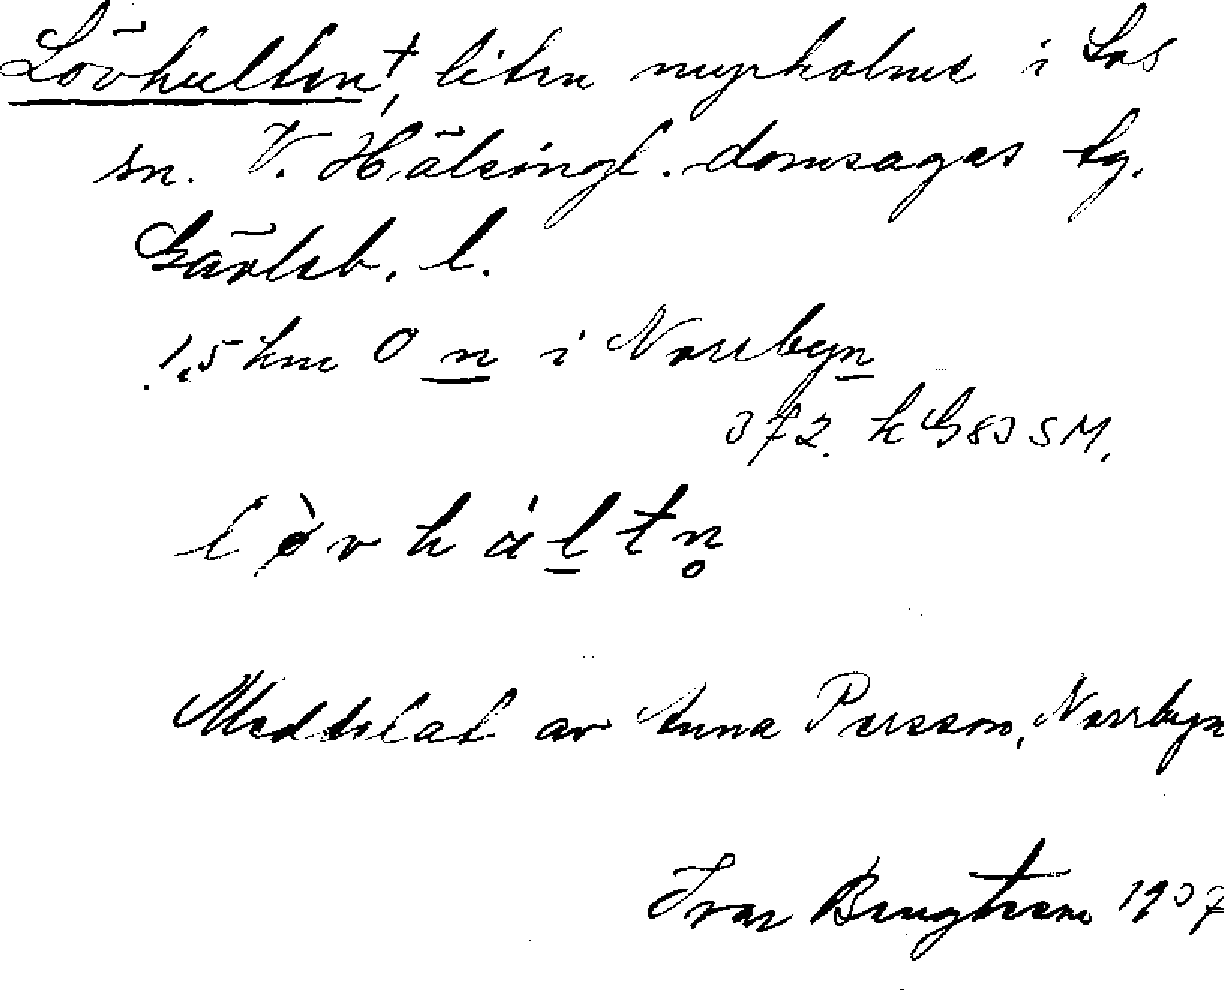 Lövhulten†, liten myrholme i Los
sn. V. Hälsingl. domsagas tg.
Gävleb. l.
1,5 km O n i Norrbyn
372. kG83SM.
l ø̀ v h á l t n̥
Meddelat av Anna Persson, Norrbyn
Ivar Bengtsson 1937